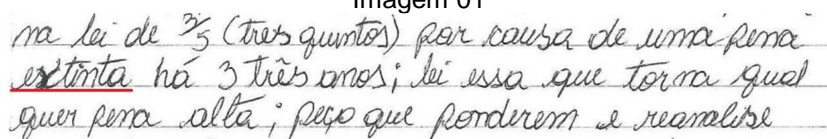 Imagem 01
na lei de 3/5 (tres quintos) por causa de uma pena
extinta há 3 três anos; lei essa que torna qual
quer pena alta; peço que ponderem e reanalise